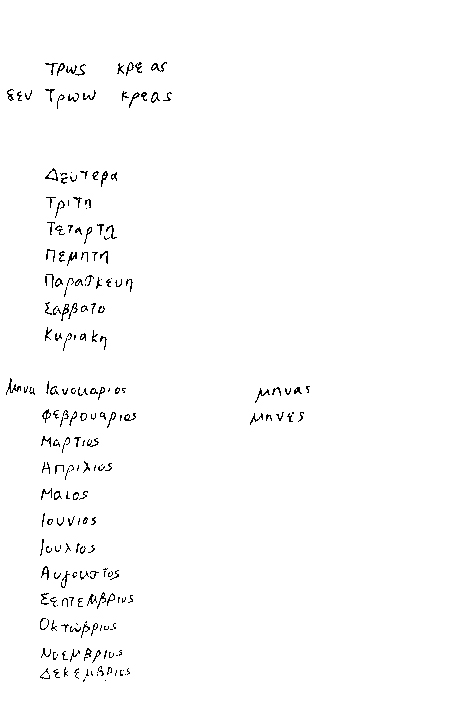 τρως κρεας
δεν τρωω κρεας
Δευτερα
Τριτη
Τεταρτη
Πεμπτη
Παρασκευη
Σαββατο
Κυριακη
μηνα Ιανουαριος μηνας
Φεβρουαριος μηνες
Μαρτιος
Απριλιος
Μαιος
Ιουνιος
Ιουλιος
Αυγουστος
Σεπτεμβριος
Οκτώβριος
Νοεμβριος
Δεκεμβριος